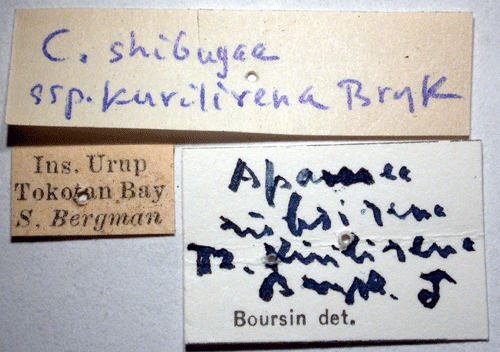 C. shibugae
ssp. kurilirena Bryk
Ins. Urup
Tokotan Bay
S. Bergman
Apamea
kurilirena
Bryk. ♂
Boursin det.